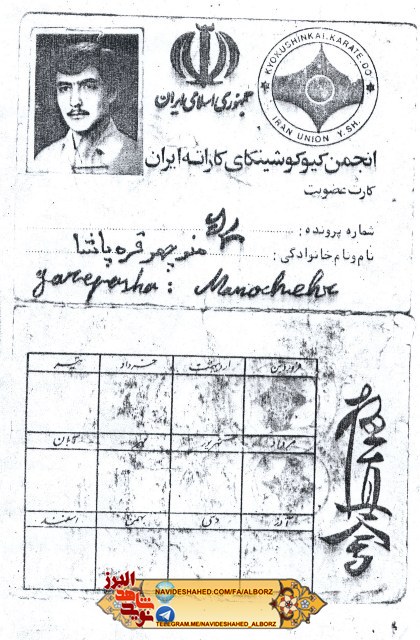 جمهوری اسلامی ایران
KYOKUSHINKAI.KARATE.DO
IRAN UNION Y.SH.
انجمن کیوکوشینکای کاراته ایران
کارت عضویت
شماره پرونده :
نام و نام خانوادگی : منوچهر قره پاشا
garepasha : Manochehr
فروردین اردیبهشت خرداد تیر
مرداد شهریور مهر آبان
آذر دی بهمن اسفند
極真会
البرز
نوید شاهد
NAVIDESHAHED.COM/FA/ALBORZ
TELEGRAM.ME/NAVIDESHAHED_ALBORZ